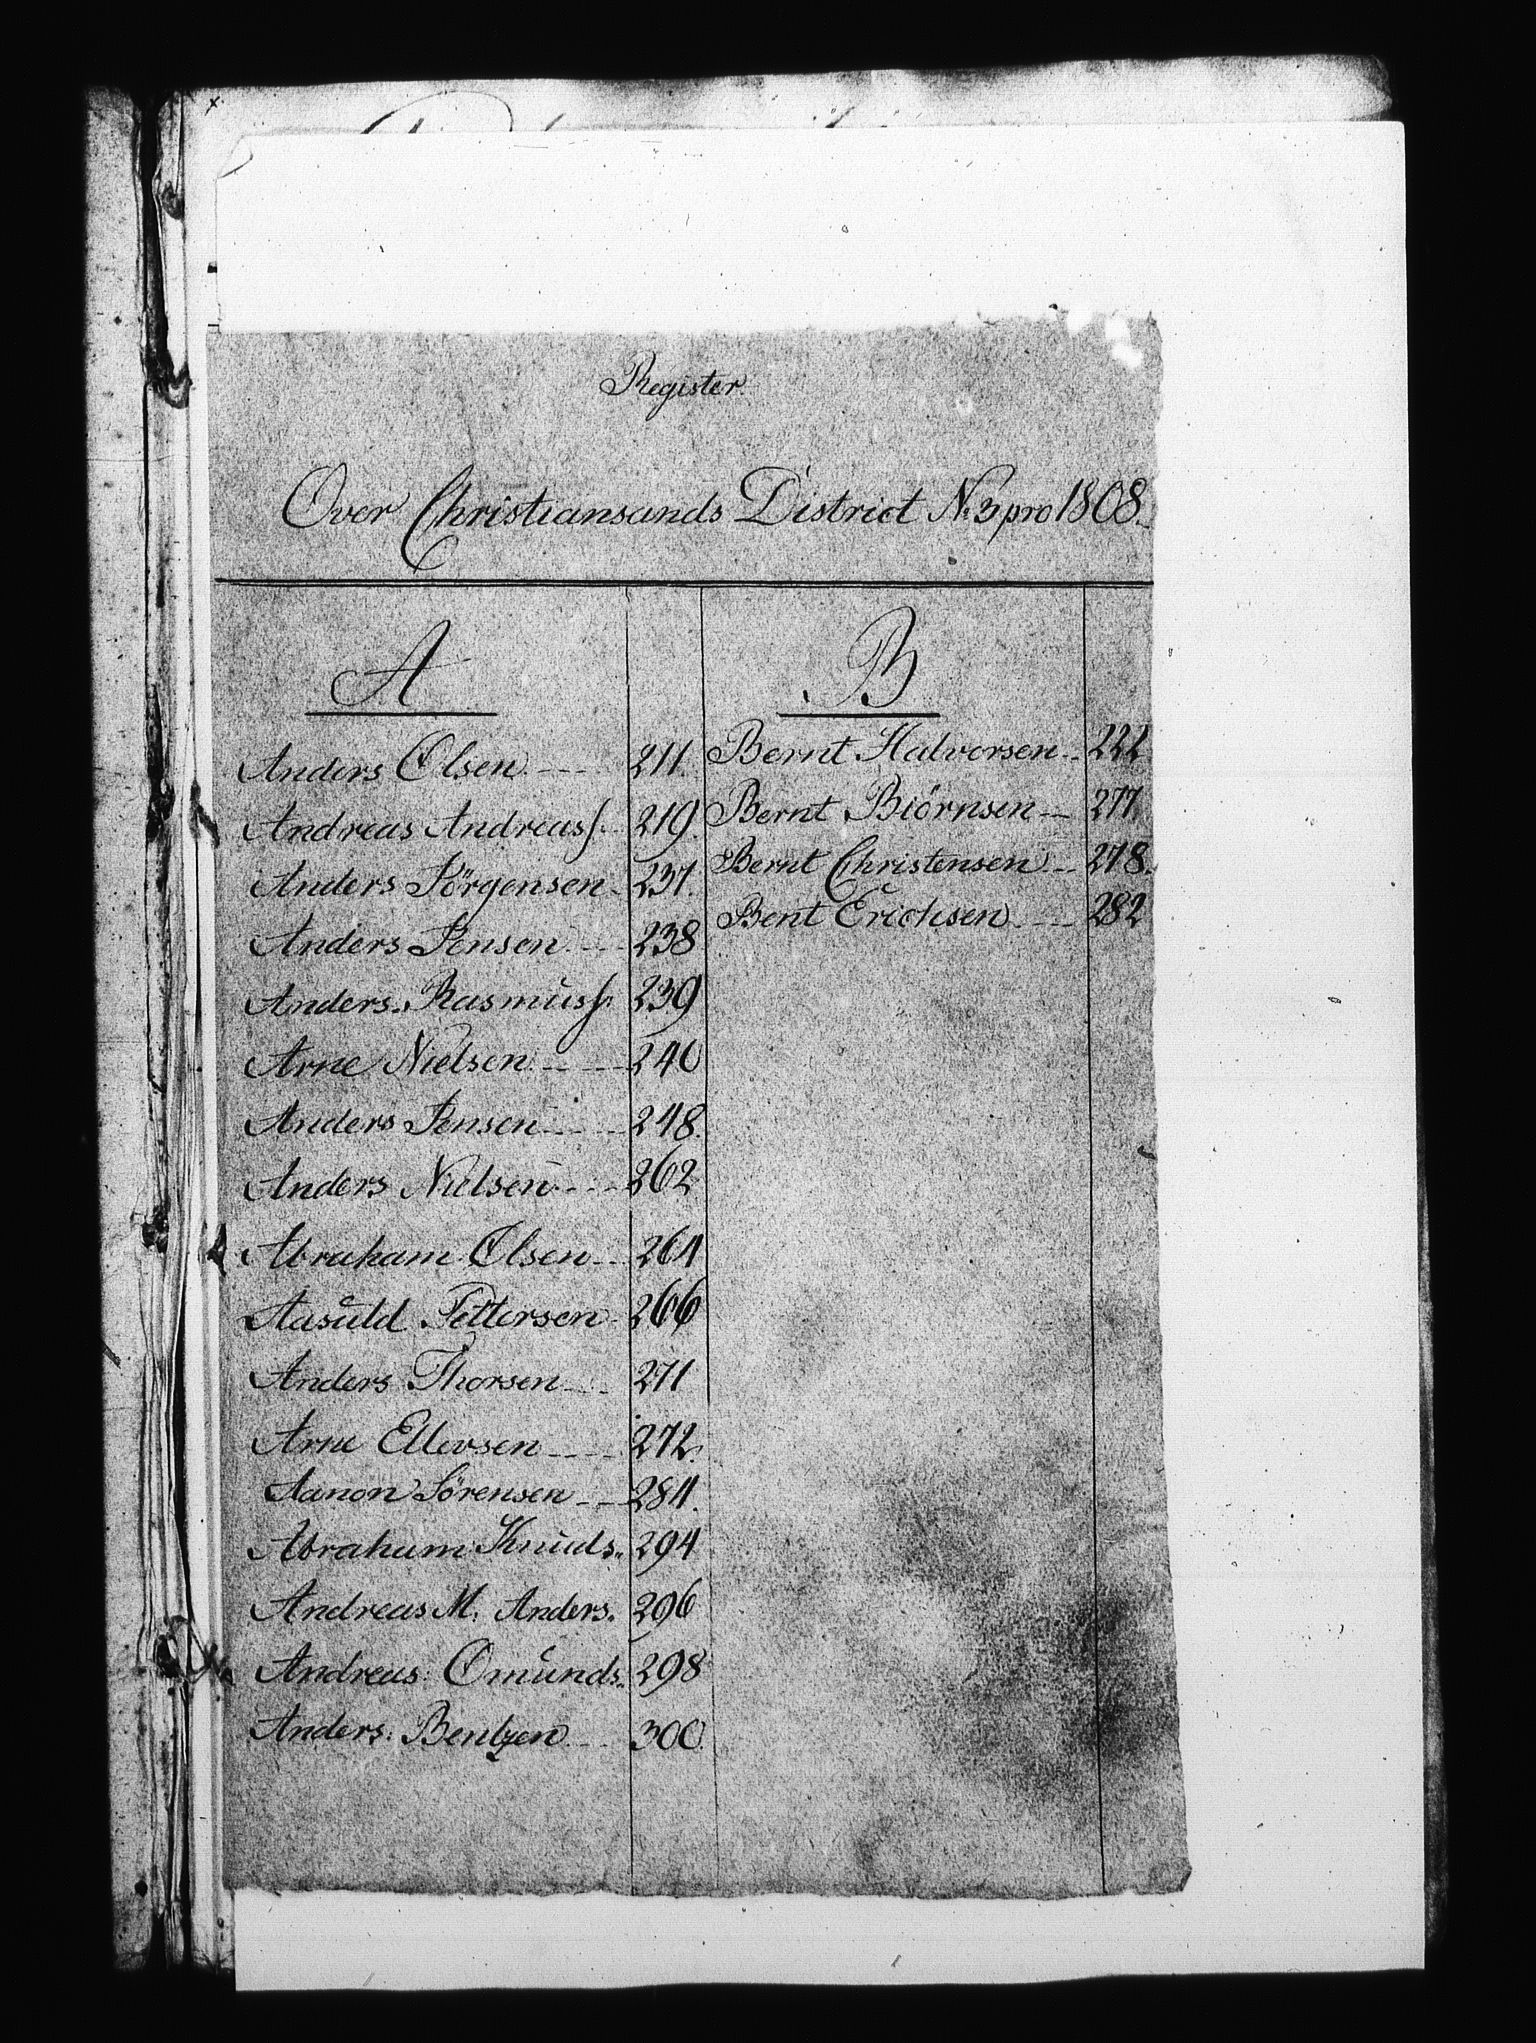 Register.
Over Christiansands District N. 3 pro 1808.
A
Anders Olsen 211.
Andreas Andreass. 219.
Anders Jörgensen 237.
Anders Jensen 238
Anders Rasmuss. 239
Arne Nielsen 240
Anders Jensen 248.
Anders Nielsen 262
Abraham Olsen 264
Aasuld Pettersen 266
Anders Thorsen 271
Arne Ellevsen 272.
Aanon Sörensen 284.
Abraham Knuds. 294
Andreas M. Anders. 296
Andreas Omunds. 298
Anders Bentzen 300.
B
Bernt Halvorsen 222
Bernt Biörnsen 277
Bernt Christensen 278.
Bent Erichsen 282